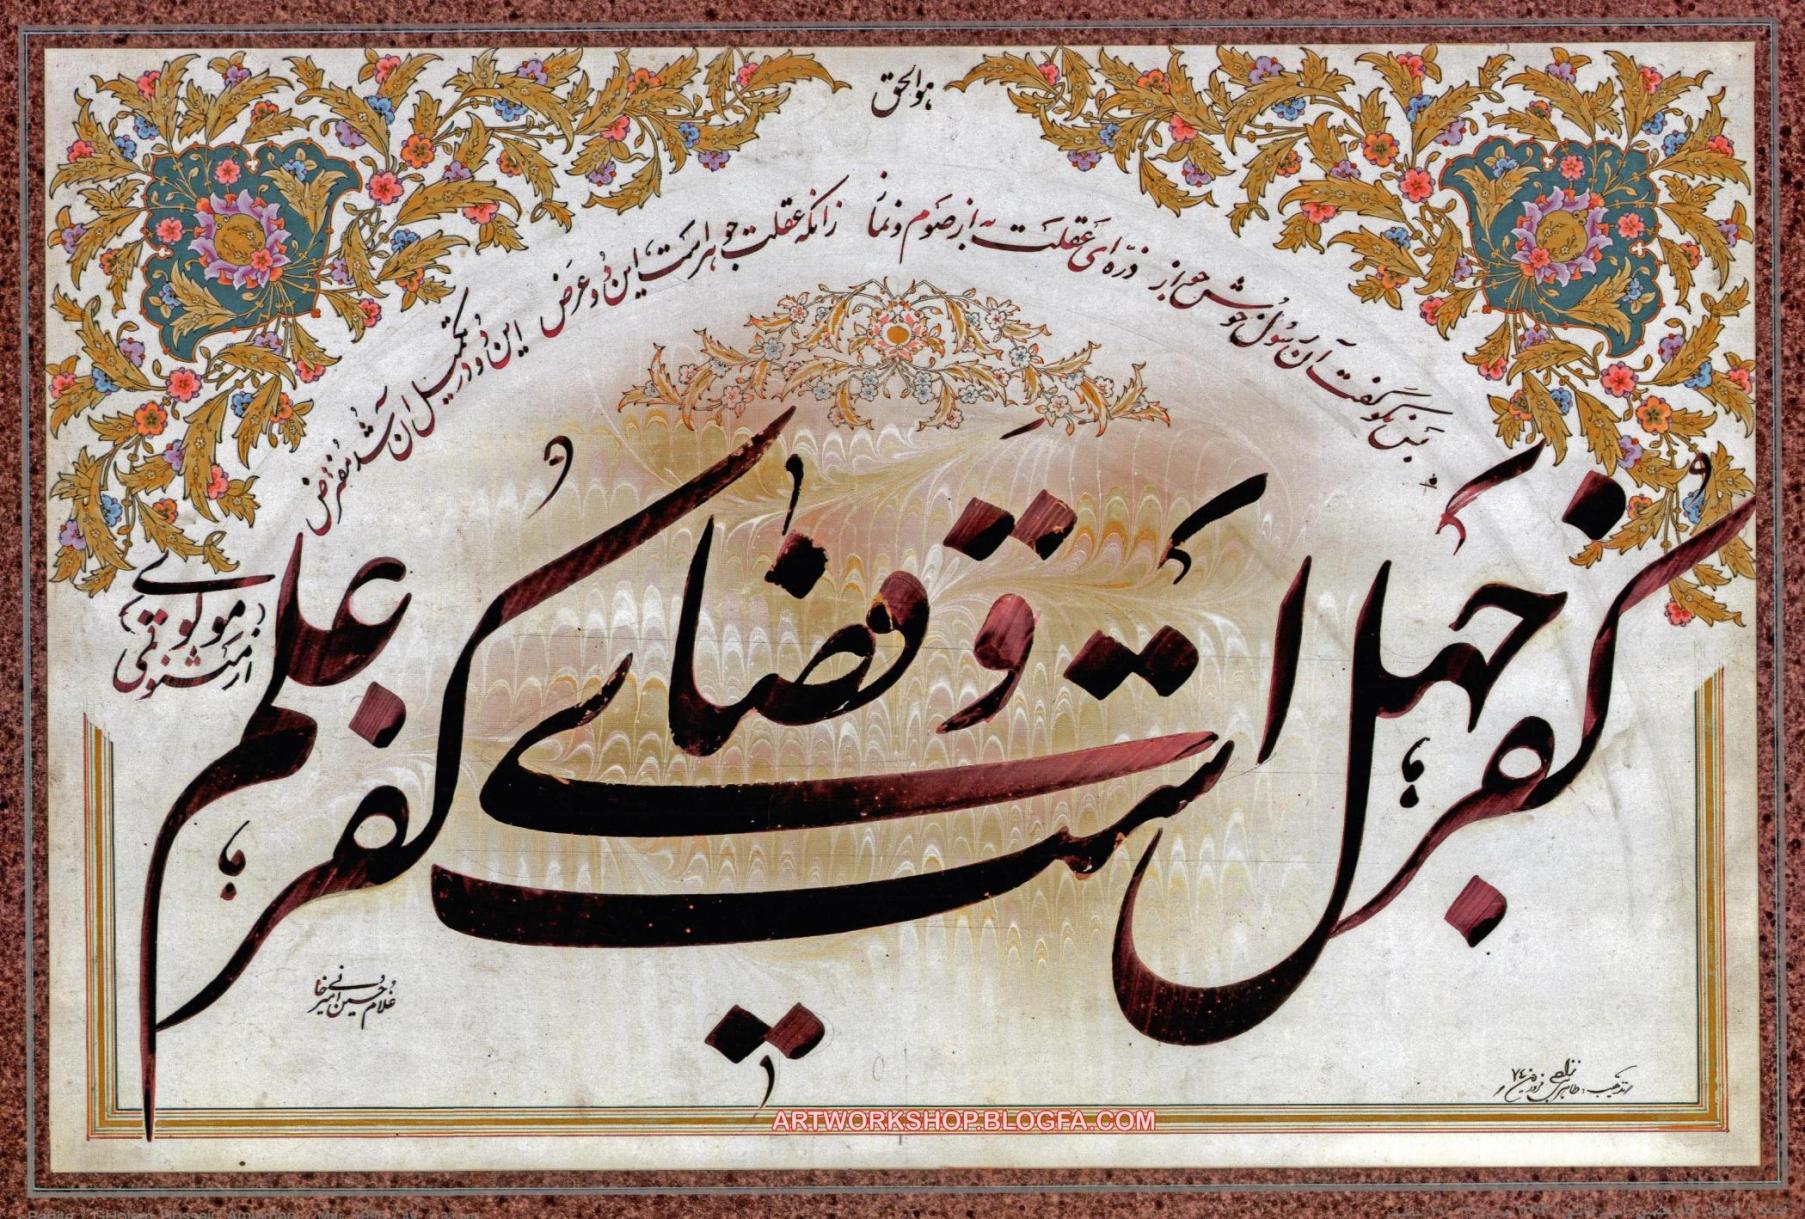 هوالحق
بس نکو گفت آن رسول خوش جواز
ذره‌ای عقلت به از صوم و نماز
زانکه عقلت جوهرست این دو عرض
این دو در تکمیل آن شد مفترض
کفر جهل است و قضای کفر علم
از مثنوی مولوی
غلامحسین امیرخانی
ARTWORKSHOP.BLOGFA.COM